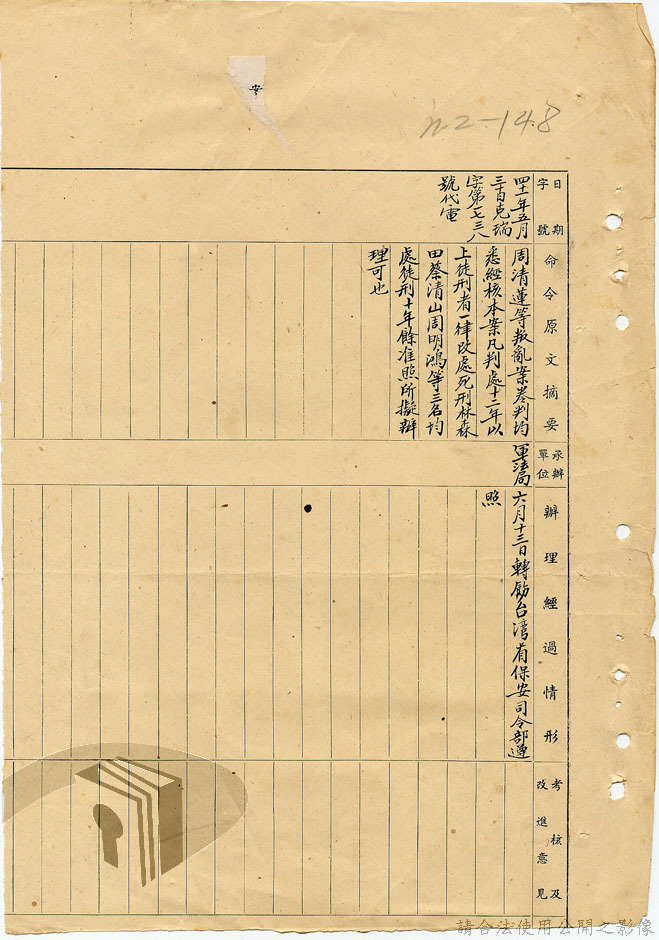 安
n2-148
日期
字號
四十一年五月
三十日克瑞
字第七三八
號代電
命令原文摘要
周清蓮等叛亂案卷判均
悉經核本案凡判處十二年以
上徒刑者一律改處死刑林森
田蔡清山周明鴻等三名均
處徒刑十年餘准照所擬辦
理可也
承辦
單位
軍法局
辦理經過情形
六月十三日轉飭台灣省保安司令部遵
照
考核及
改進意見
請合法使用公開之影像